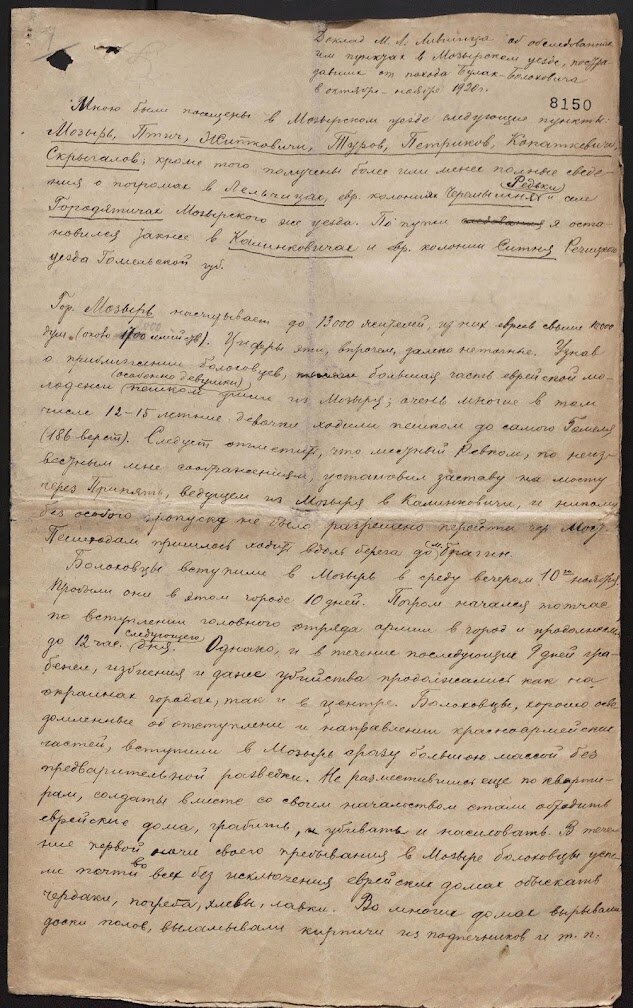 Доклад М. Л. Лившица об обследованных
им пунктах в Мозырском уезде, постра-
давших от похода Булак-Болоховича
в октябре-ноябре 1920 г.
8150
Мною были посещены в Мозырском уезде следующие пункты:
Мозырь, Птич, Житковичи, Туров, Петриков, Копаткевичи,
Скрыгалов; кроме того получены более или менее полные сведе-
ния о погромах в Лельчицах, евр. колониях и Редьки селе
Городятичах Мозырского же уезда. По пути я оста-
новился также в Калинковичах и евр. колонии Ситня Речицкого
уезда Гомельской губ.
Гор. Мозырь насчитывает до 13000 жителей, из них евреев свыше 10000
душ (около семейств). Цифры эти, впрочем, далеко неточные. Узнав
о приближении болоховцев, большая часть еврейской мо-
лодежи (особенно девушки) пешком из Мозыря; очень многие в том
числе 12-15 летние девочки ходили пешком до самого Гомеля
(186 верст). Следует отметить, что местный Ревком, по неиз-
вестным мне соображениям, установил заставу на мосту
через Припять, ведущем из Мозыря в Калинковичи, и никому
без особого пропуска не было разрешено перейти чер. мост.
Пешеходам пришлось ходить вдоль берега до м. Брагин.
Болоховцы вступили в Мозырь в среду вечером 10го ноября.
Пробыли они в этом городе 10 дней. Погром начался тотчас
по вступлении головного отряда армии в город и продолжался
до 12 час. следующего дня. Однако, и в течение последующих 9 дней гра-
бежи, избиения и даже убийства продолжались как на
окраинах города, так и в центре. Болоховцы, хорошо осве-
домленные об отступлении и направлении красноармейских
частей, вступили в Мозырь сразу большою массой без
предварительной разведки. Не разместившись еще по кварти-
рам, солдаты вместе со своим начальством стали обходить
еврейские дома, грабить, убивать и насиловать. В тече-
ние первой ночи своего пребывания в Мозыре болоховцы успе-
ли почти во всех без исключения еврейских домах обыскать
чердаки, погреба, хлевы, лавки. Во многих домах вырывали
доски полов, выламывали кирпичи из подпечников и т. п.